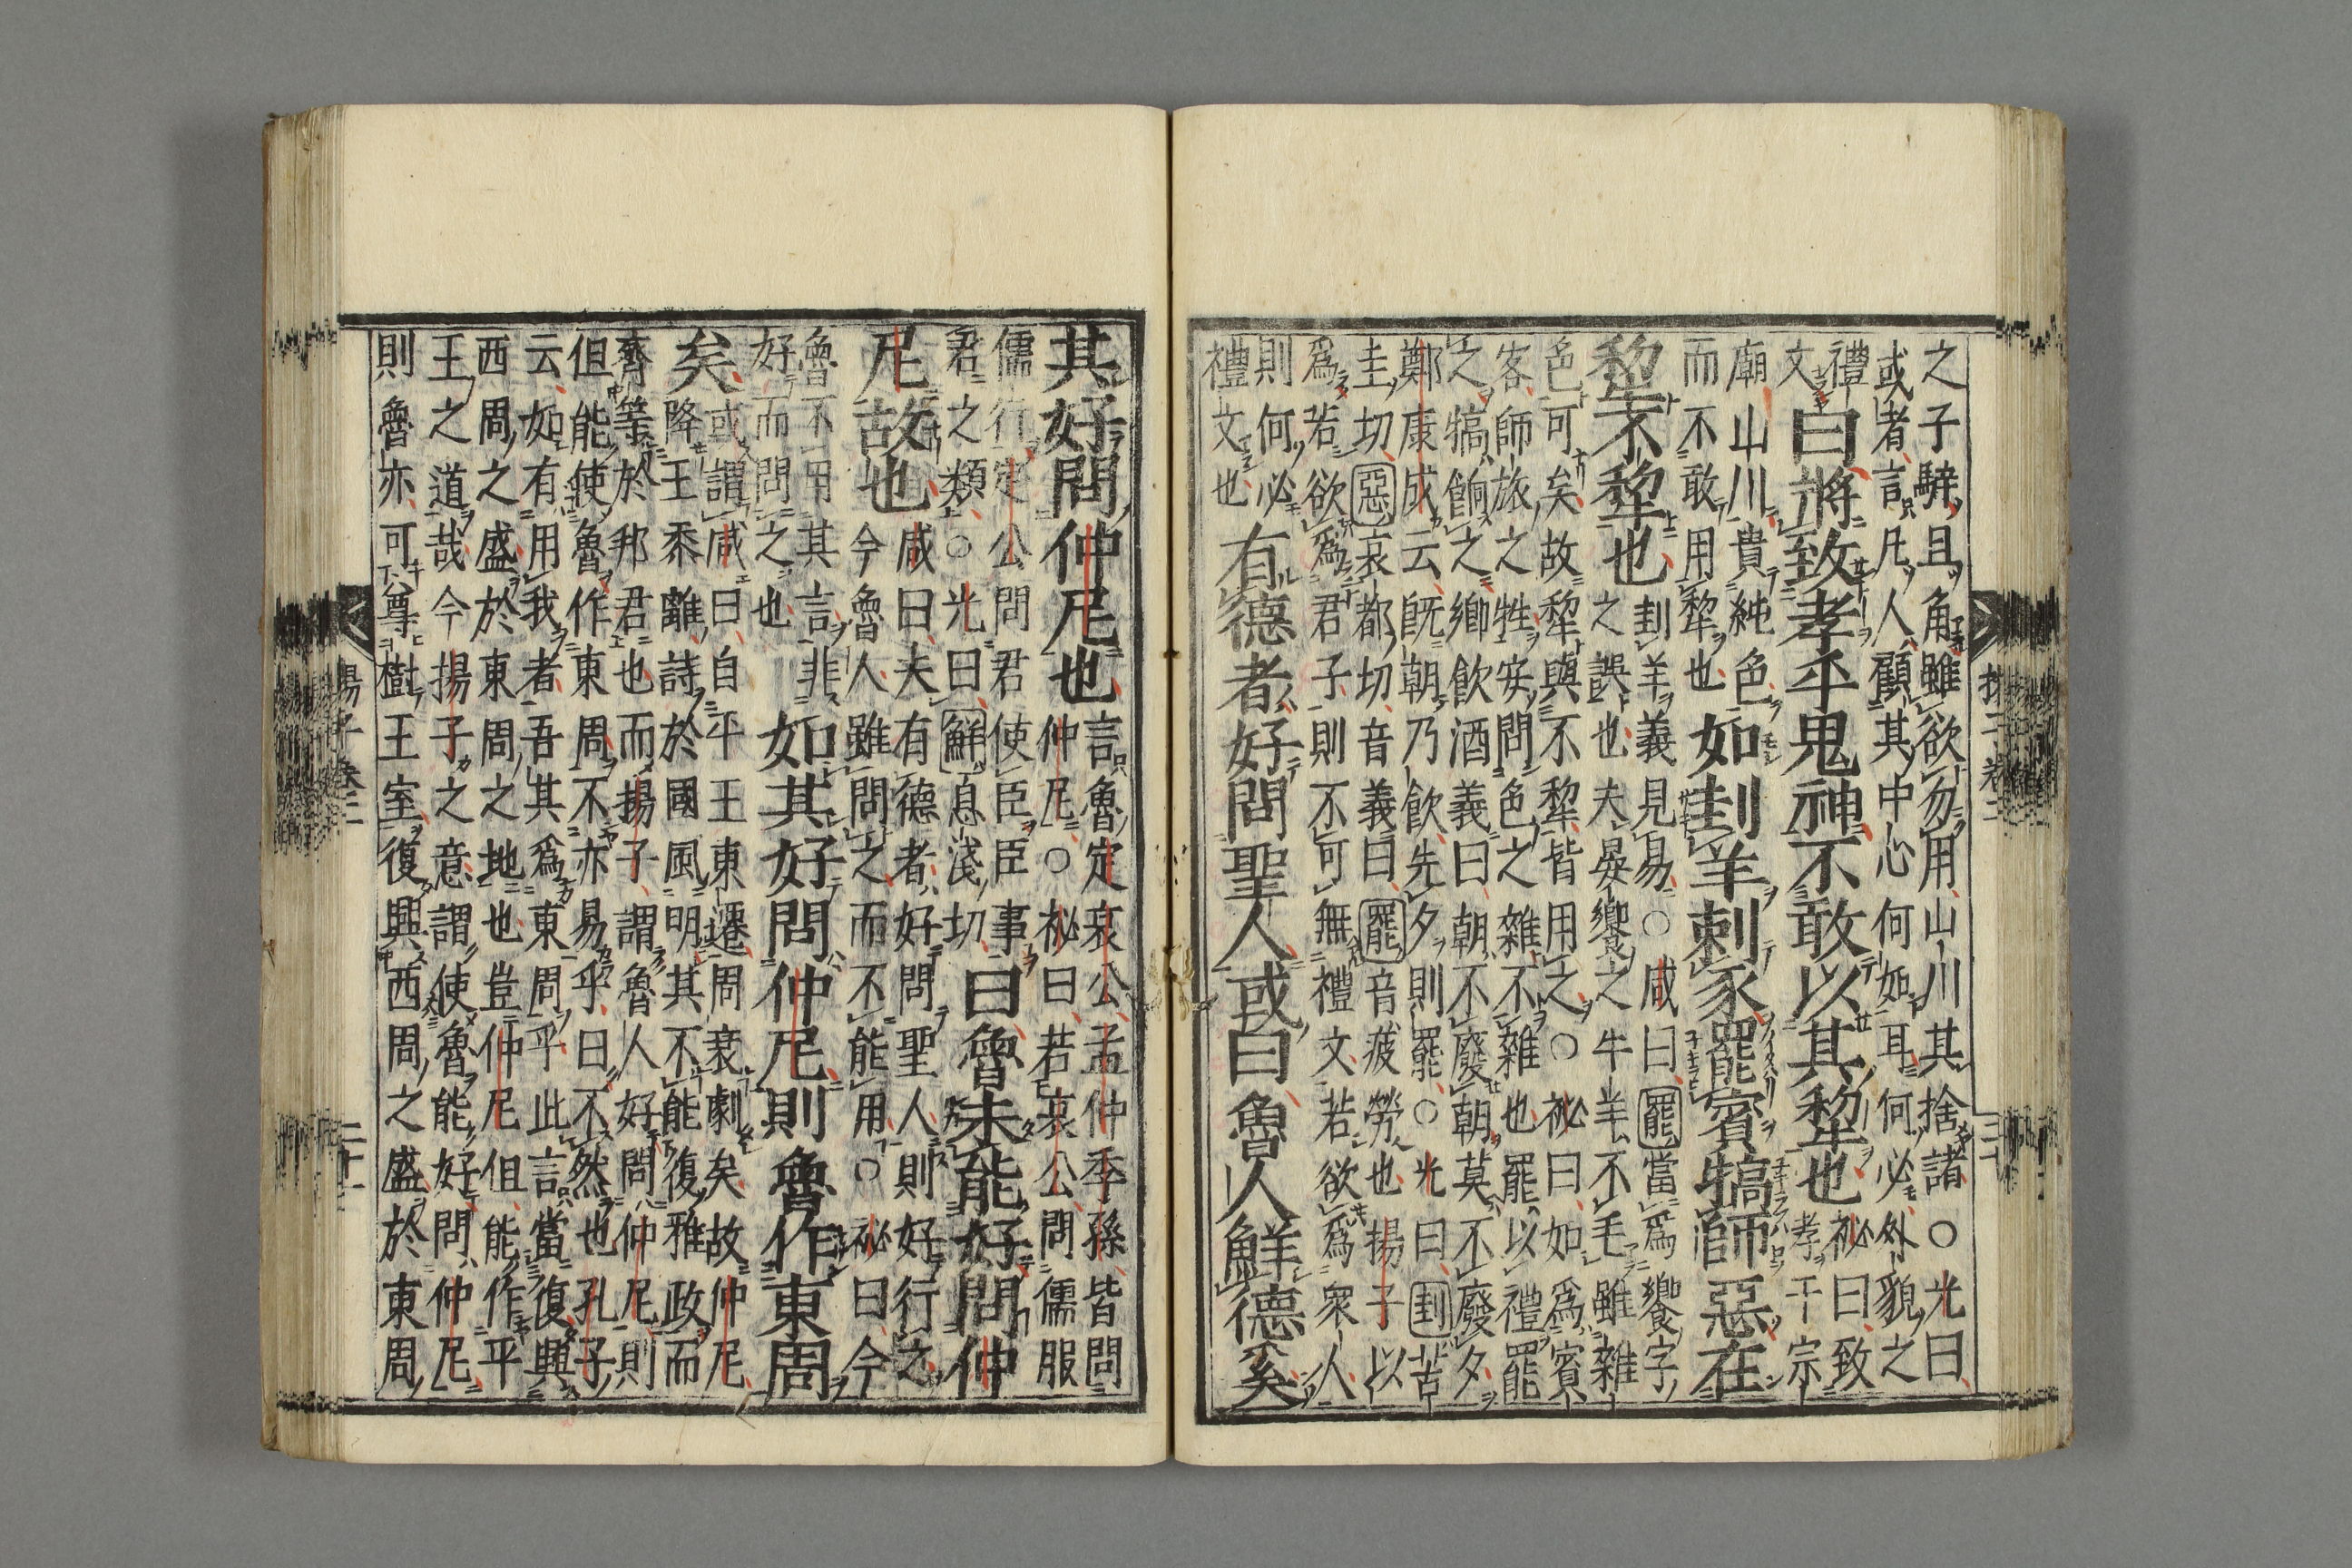 之子騂且角雖欲勿用山川其捨諸○光曰
或者言凡人顧其中心何如耳何必外貌之
禮
文
曰將致孝乎鬼神不敢以其犂也
祕曰致
孝干宗
廟山川貴純色
而不敢用犂也
如刲羊刺豕罷賓犒師惡在
犂不犂也
刲羊義見易○咸曰罷當爲饗字
之誤也夫晏饗之牛羊不毛雖雜
色可矣故犂與不犂皆用之○祕曰如爲賓
客師旅之牲安問色之雜不雜也罷以禮罷
之犒餉之鄉飲酒義曰朝不廢朝莫不廢夕
鄭康成云既朝乃飲先夕則罷○光曰刲苦
圭切惡哀都切音義曰罷音疲勞也揚子以
爲若欲爲君子則不可無禮文若欲爲衆人
則何必
禮文也
有德者好問聖人或曰魯人鮮德奚
其好問仲尼也
言魯定哀公孟仲季孫皆問
仲尼○祕曰若哀公問儒服
儒行定公問君使臣臣事
君之類○光曰鮮息淺切
曰魯未能好問仲
尼故也
咸曰夫有德者好問聖人則好行之
今魯人雖問之而不能用○祕曰今
魯不用其言非
好而問之也
如其好問仲尼則魯作東周
矣
或謂咸曰自平王東遷周衰劇矣故仲尼
降王黍離詩於國風明其不能復雅政而
齊等於邦君也而揚子謂魯人好問仲尼則
但能使魯作東周不亦易乎曰不然也孔子
云如有用我者吾其爲東周乎此言當復興
西周之盛於東周之地也豈仲尼但能作平
王之道哉今揚子之意謂使魯能好問仲尼
則魯亦可尊樹王室復興西周之盛於東周
揚子卷二